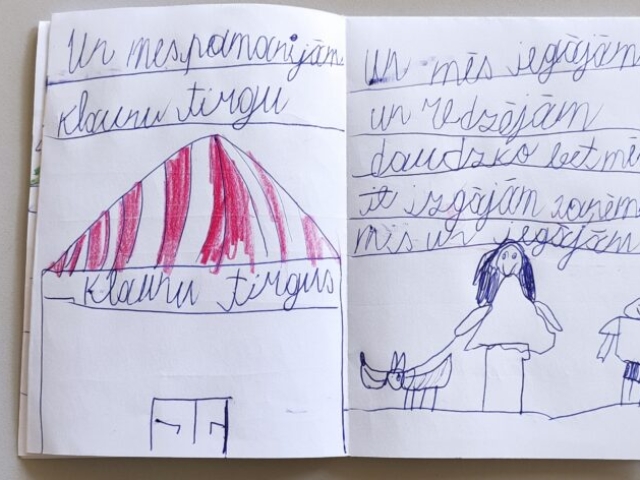 Un mes pamanījām
klaunu tirgu
klaunu tirgus
Un mēs iegājām
un redzējām
daudzko bet mē
izgājām
mis un iegājām